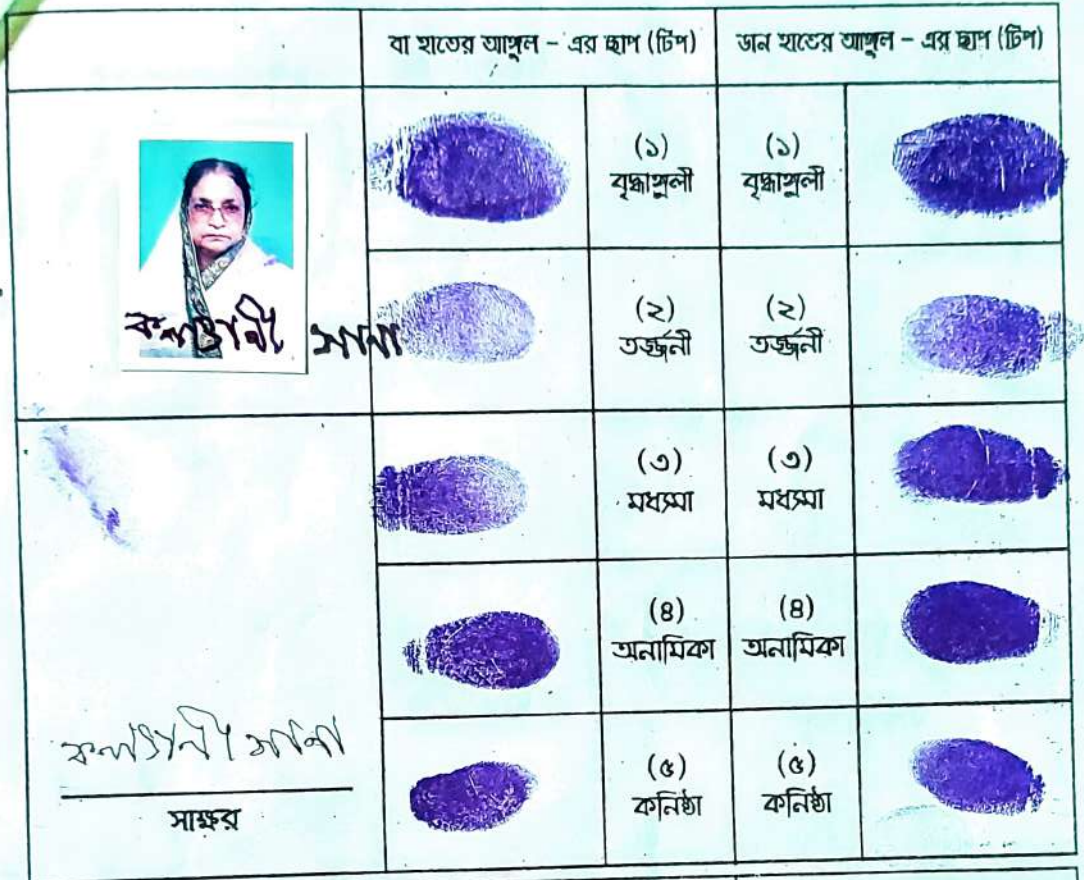 বা হাতের আঙ্গুল – এর ছাপ (টিপ)
ডান হাতের আঙ্গুল – এর ছাপ (টিপ)
(১) বৃদ্ধাঙ্গুলী
(১) বৃদ্ধাঙ্গুলী
কল্যাণী
(২) তর্জ্জনী
(২) তর্জ্জনী
(৩) মধ্যমা
(৩) মধ্যমা
(৪) অনামিকা
(৪) অনামিকা
কল্যাণী
সাক্ষর
(৫) কনিষ্ঠা
(৫) কনিষ্ঠা